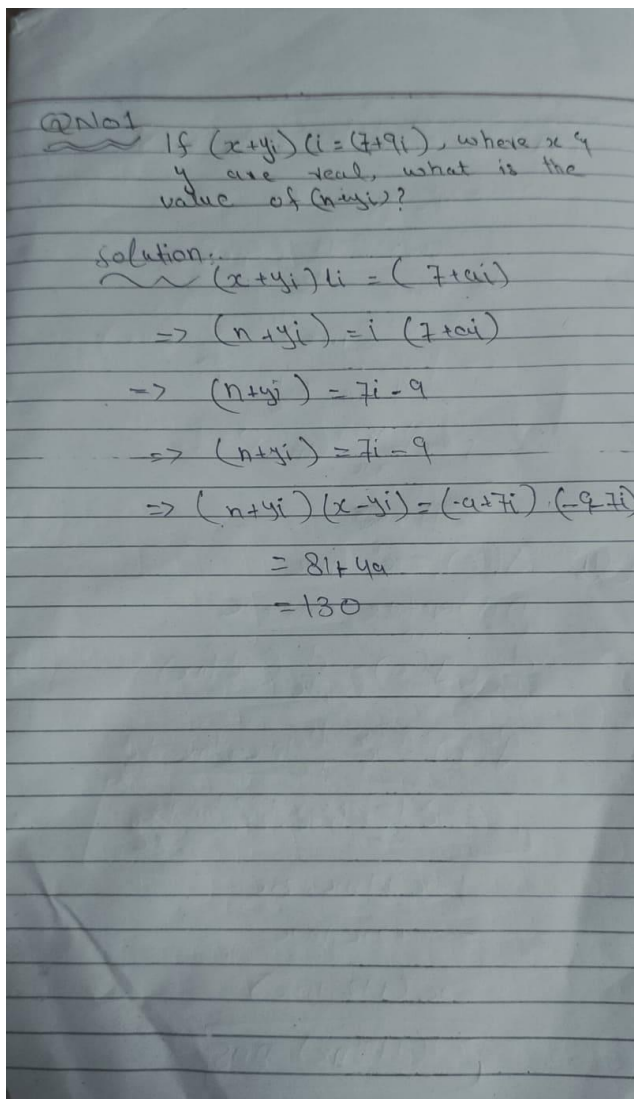 Q No 1
If (x+yi) (i = (7+9i), where x &
y are real, what is the
value of (n+yi)?
Solution:.
(x+yi) Li = ( 7+9i)
=> (n+yi) = i (7+9i)
=> (n+yi) = 7i - 9
=> (n+yi) = 7i - 9
=> (n+yi) (x-yi) = (-9+7i) . (-9-7i)
= 81+49
= 130